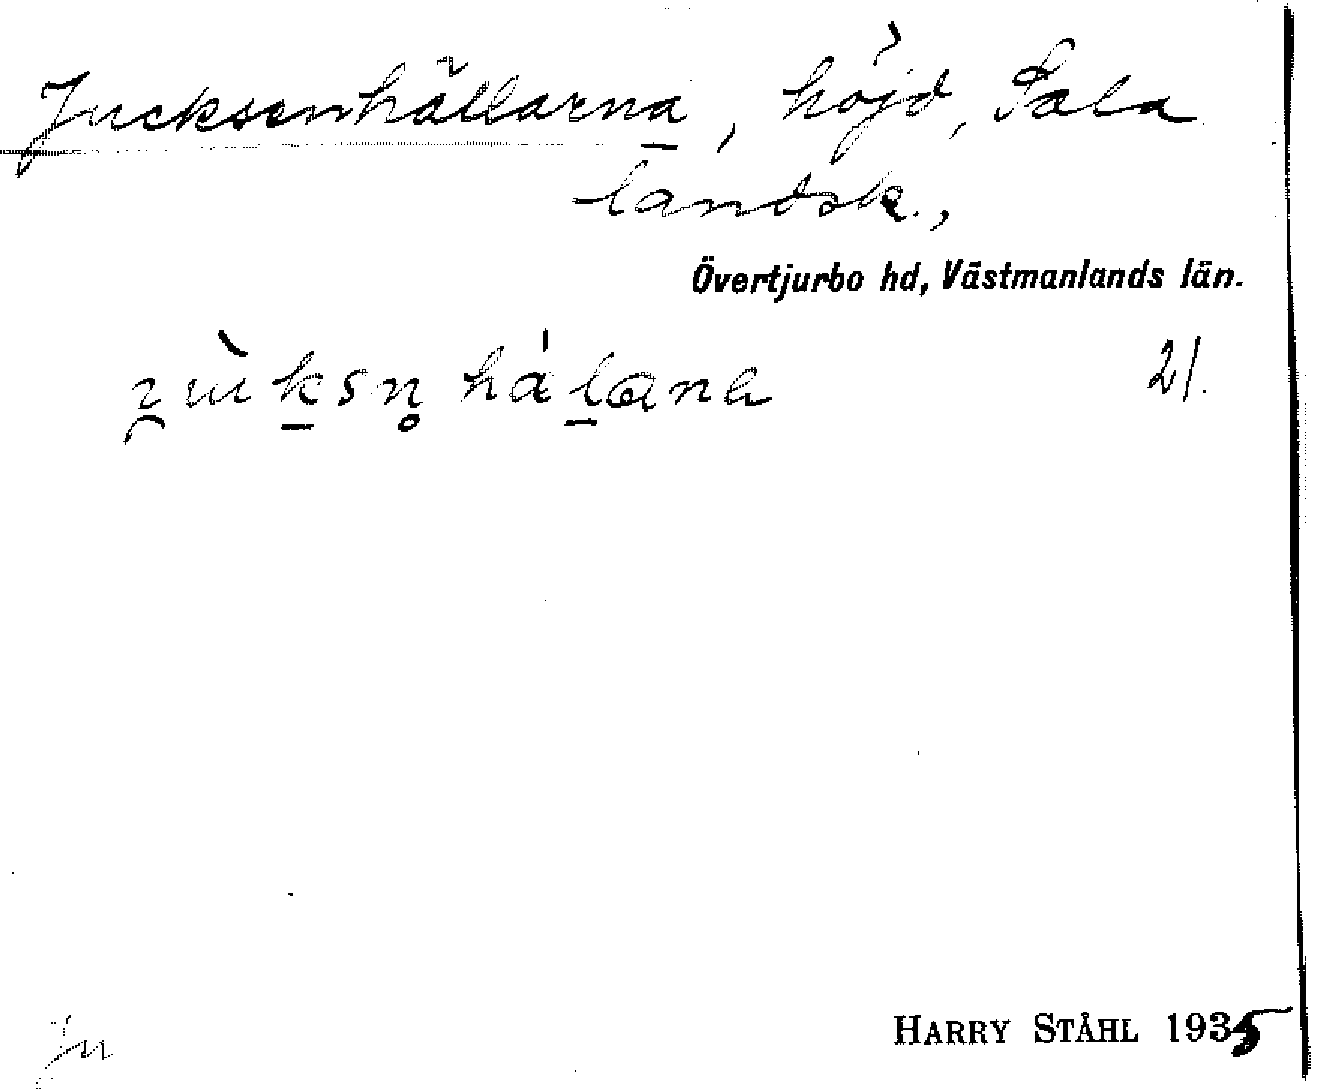 Jucksenhällarna, höjd, Sala
landsk.,
Övertjurbo hd, Västmanlands län.
21.
HARRY STÅHL 1935
Ju